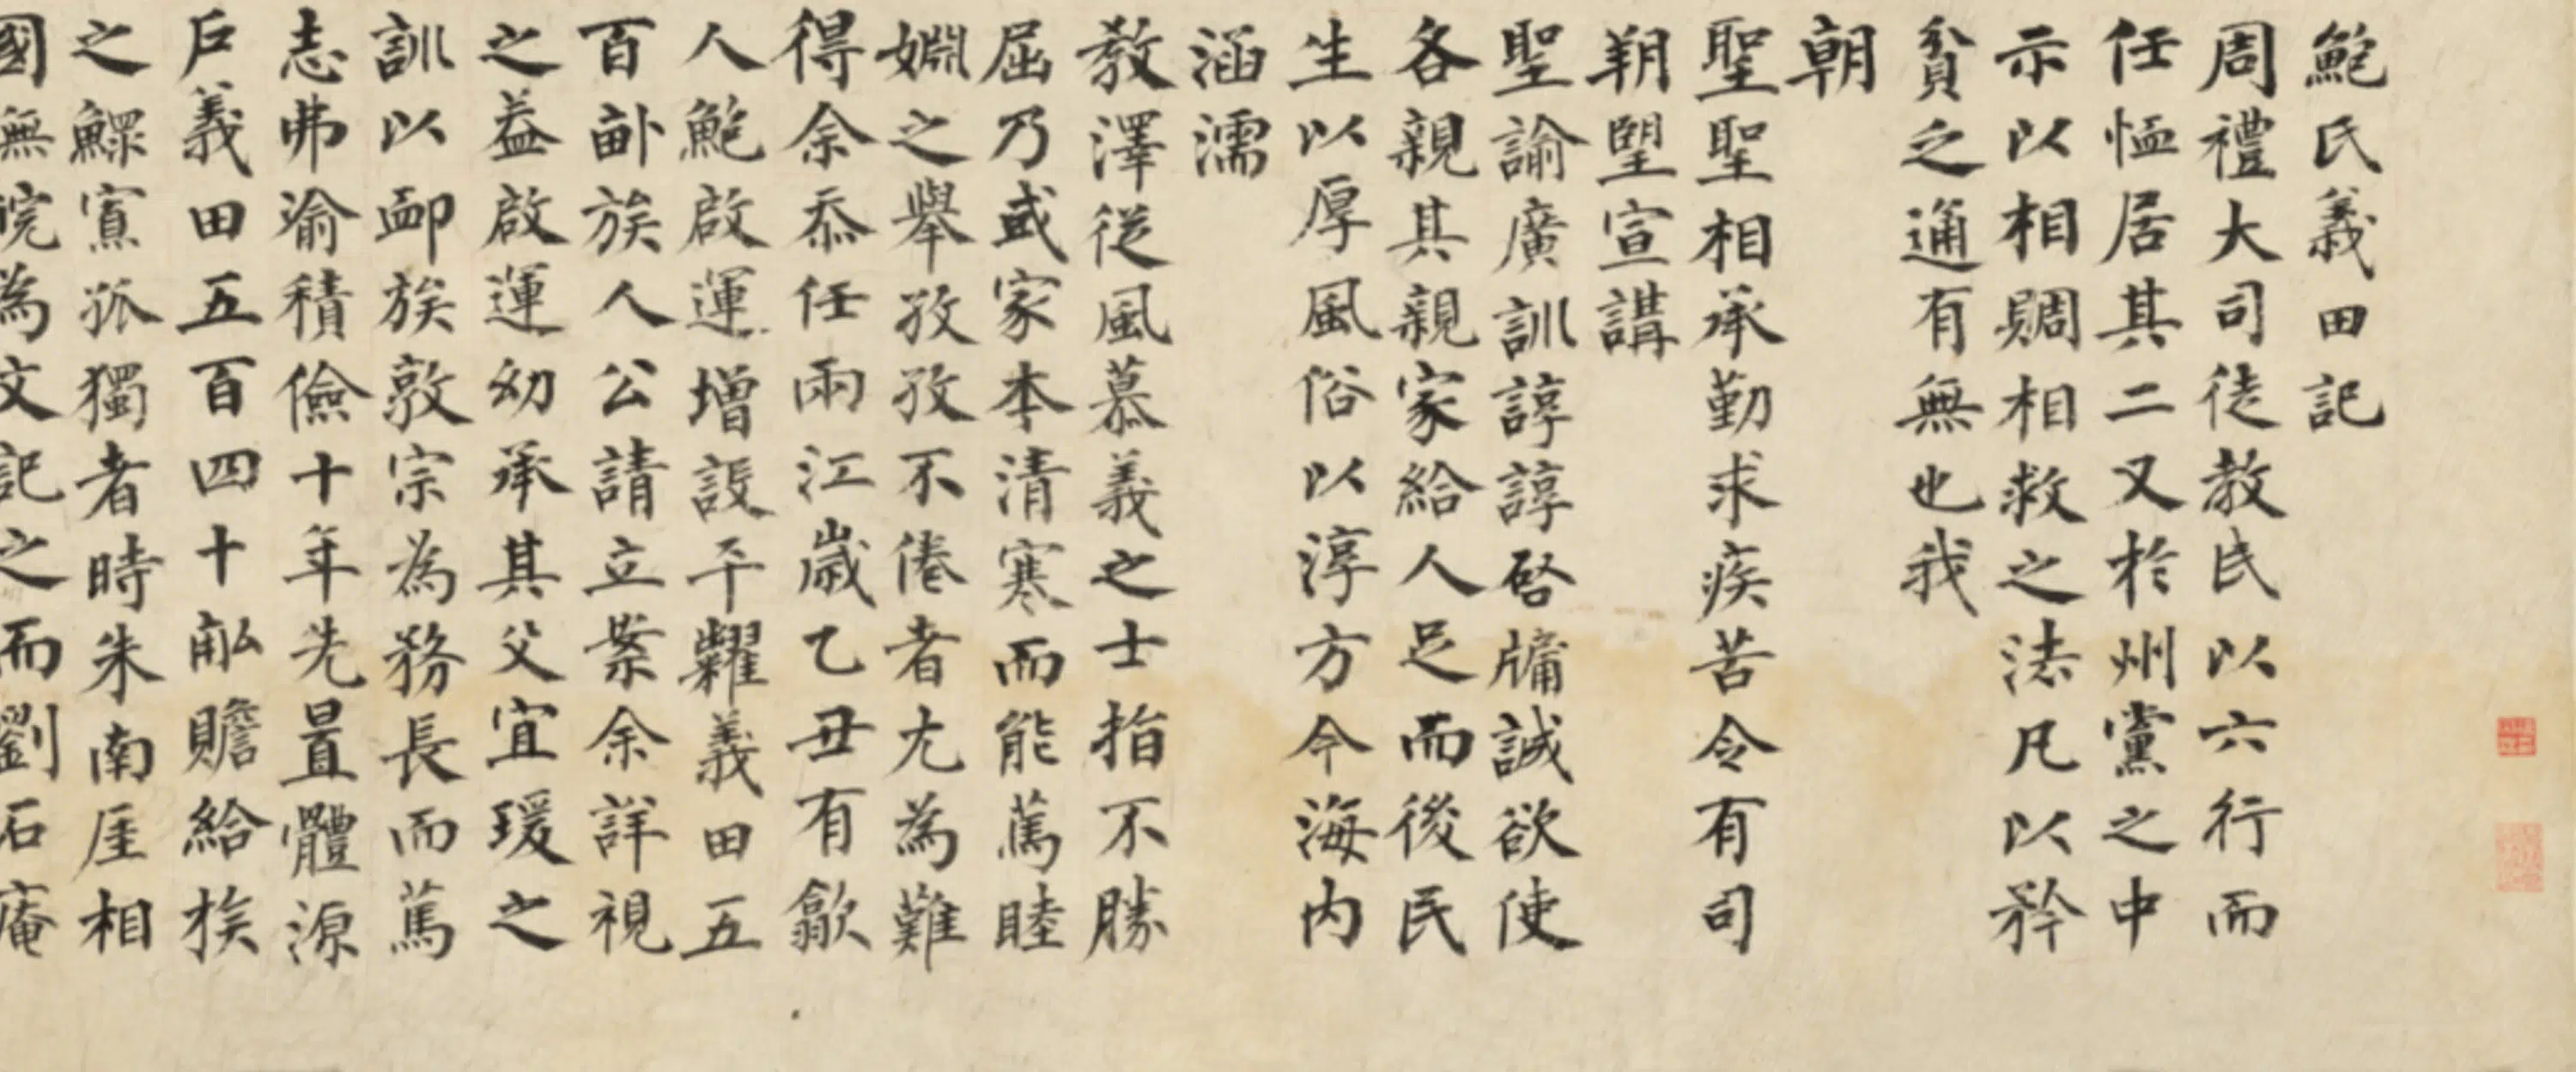 鮑氏義田記
周禮大司徒教民以六行而
任恤居其二又於州黨之中
示以相賙相救之法凡以矜
貧乏通有無也我
朝
聖聖相承勤求疾苦令有司
朔望宣講
聖諭廣訓諄諄啓牖誠欲使
各親其親家給人足而後民
生以厚風俗以淳方今海内
涵濡
教澤從風慕義之士指不勝
屈乃或家本清寒而能篤睦
婣之舉孜孜不倦者尤為難
得余忝任兩江歲乙丑有歙
人鮑啟運增設平糶義田五
百畝族人公請立案余詳視
之益啟運幼承其父宜瑗之
訓以卹族敦宗為務長而篤
志弗渝積儉十年先置體源
戶義田五百四十畝贍給族
之鰥寡孤獨者時朱南厓相
國無為文記之而劉石庵